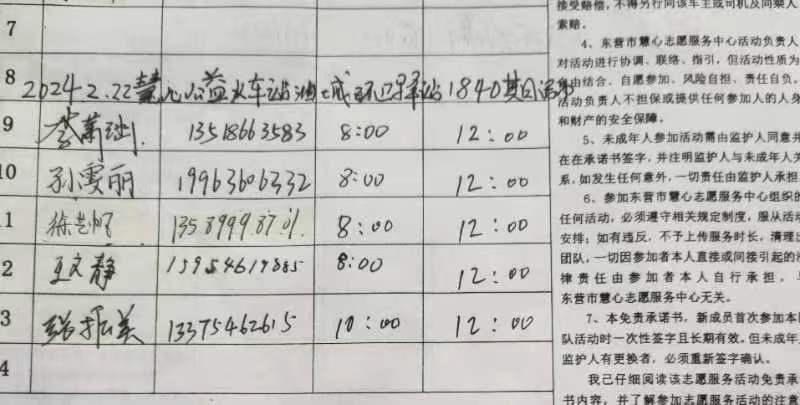 7
8
2024.2.22慧心公益火车站油城环卫驿站1840期日活动
9 李萧 13518663583 8:00 12:00
10 孙雯丽 19963606332 8:00 12:00
11 徐 8:00 12:00
12 王文静 15954619885 8:00 12:00
13 振美 13375462615 10:00 12:00
14
接受赔偿，不得另行向该车主或司机及同乘人
索赔。
4、东营市慧心志愿服务中心活动负责人
对活动进行协调、联络、指引，但活动性质为
自由结合、自愿参加、风险自担、责任自负。
活动负责人不担保或提供任何参加人的人身
和财产的安全保障。
5、未成年人参加活动需由监护人同意并
在在承诺书签字，并注明监护人与未成年人关
系，如发生任何意外，一切责任由监护人承担
6、参加东营市慧心志愿服务中心组织的
任何活动，必须遵守相关规定制度，服从活动
安排；如有违反，不予上传服务时长，清理出
团队，一切因参加者本人直接或间接引起的法
律责任由参加者本人自行承担，与
东营市慧心志愿服务中心无关。
7、本免责承诺书，新成员首次参加本团
队活动时一次性签字且长期有效。但未成年人
监护人有更换者，必须重新签字确认。
我已仔细阅读该志愿服务活动免责承
书内容，并了解参加志愿服务活动的注意